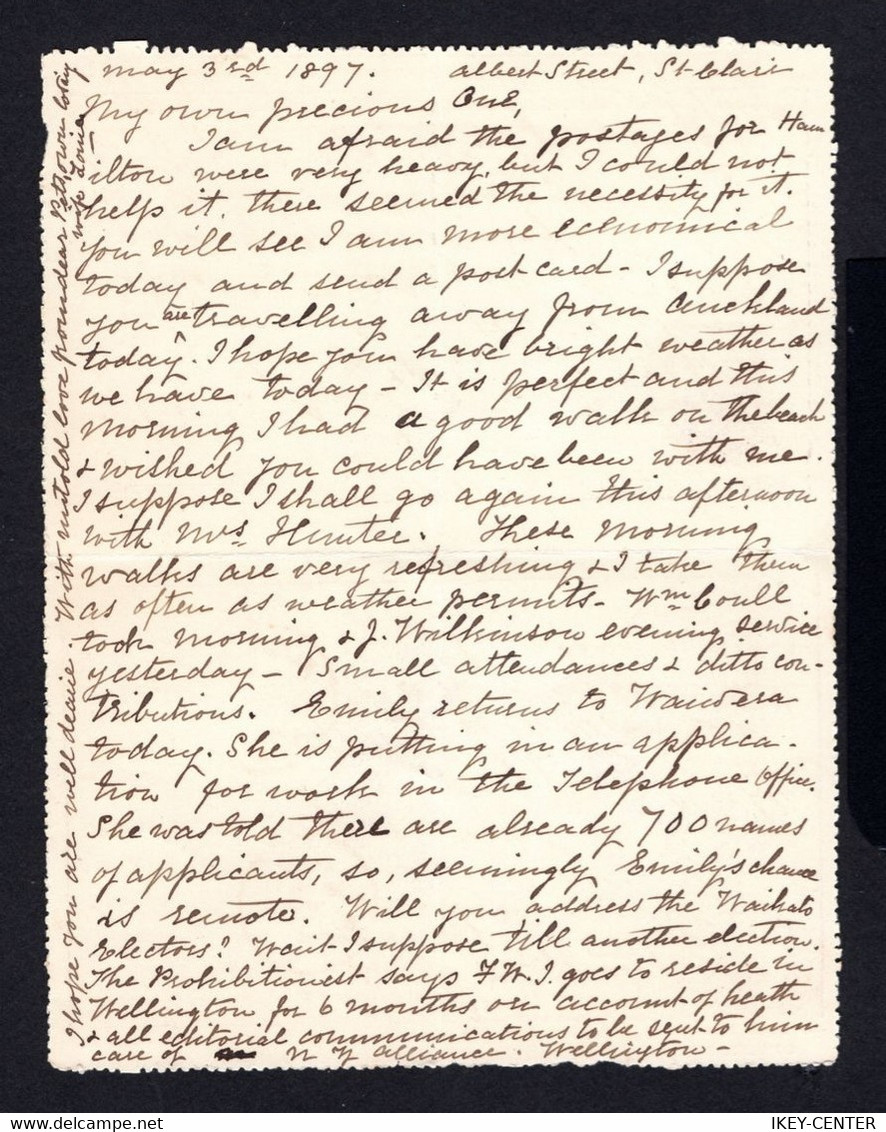 May 3rd 1897. Albert Street, St Clair
My own precious One,
I am afraid the postages for Ham
ilton were very heavy, but I could not
help it, there seemed the necessity for it.
You will see I am more economical
today and send a post-card - I suppose
you are travelling away from Auckland
today. I hope you have bright weather as
we have today - It is perfect and this
morning I had a good walk on the beach
& wished you could have been with me.
I suppose I shall go again this afternoon
with Mrs Hunter. These morning
walks are very refreshing & I take them
as often as weather permits - Wm Coull
took morning & J. Wilkinson evening service
yesterday - Small attendances & ditto con-
tributions. Emily returns to Waiwera
today. She is putting in an applica-
tion for work in the Telephone Office.
She was told there are already 700 names
of applicants, so, seemingly Emily's chance
is remote. Will you address the Waikato
Electors? Wait I suppose till another election.
The Prohibitionist says F.W.I. goes to reside in
Wellington for 6 months on account of heath
& all editorial communications to be sent to him
care of N Z Alliance. Wellington -
I hope you are well dearie. With untold love from dear Pet's own loving
wife
IKEY-CENTER